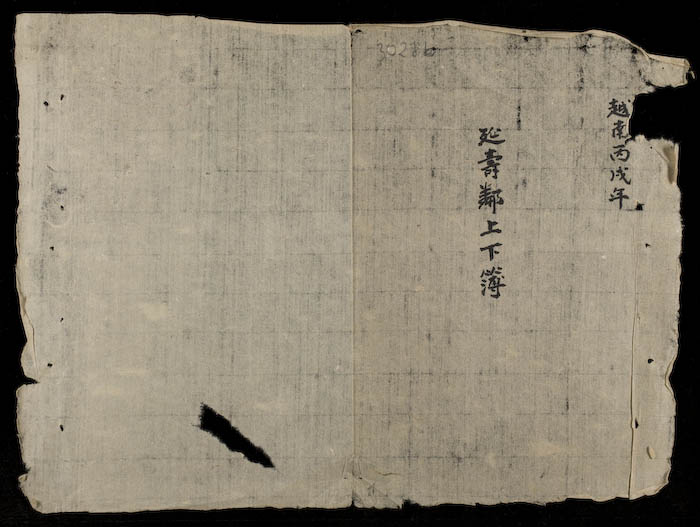 越南丙戌年
延壽鄰上下簿